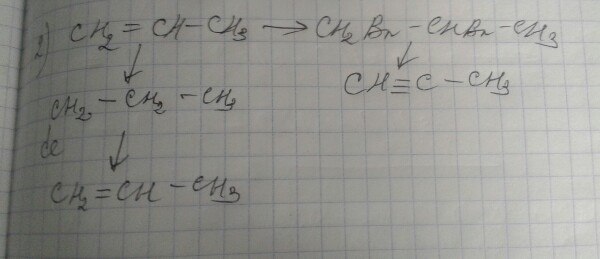 2) CH₂ = CH - CH₃ → CH₂Br - CHBr - CH₃
↓ ↓
CH ≡ C - CH₃
CH₂ - CH₂ - CH₃
↓
CH₂ = CH - CH₃